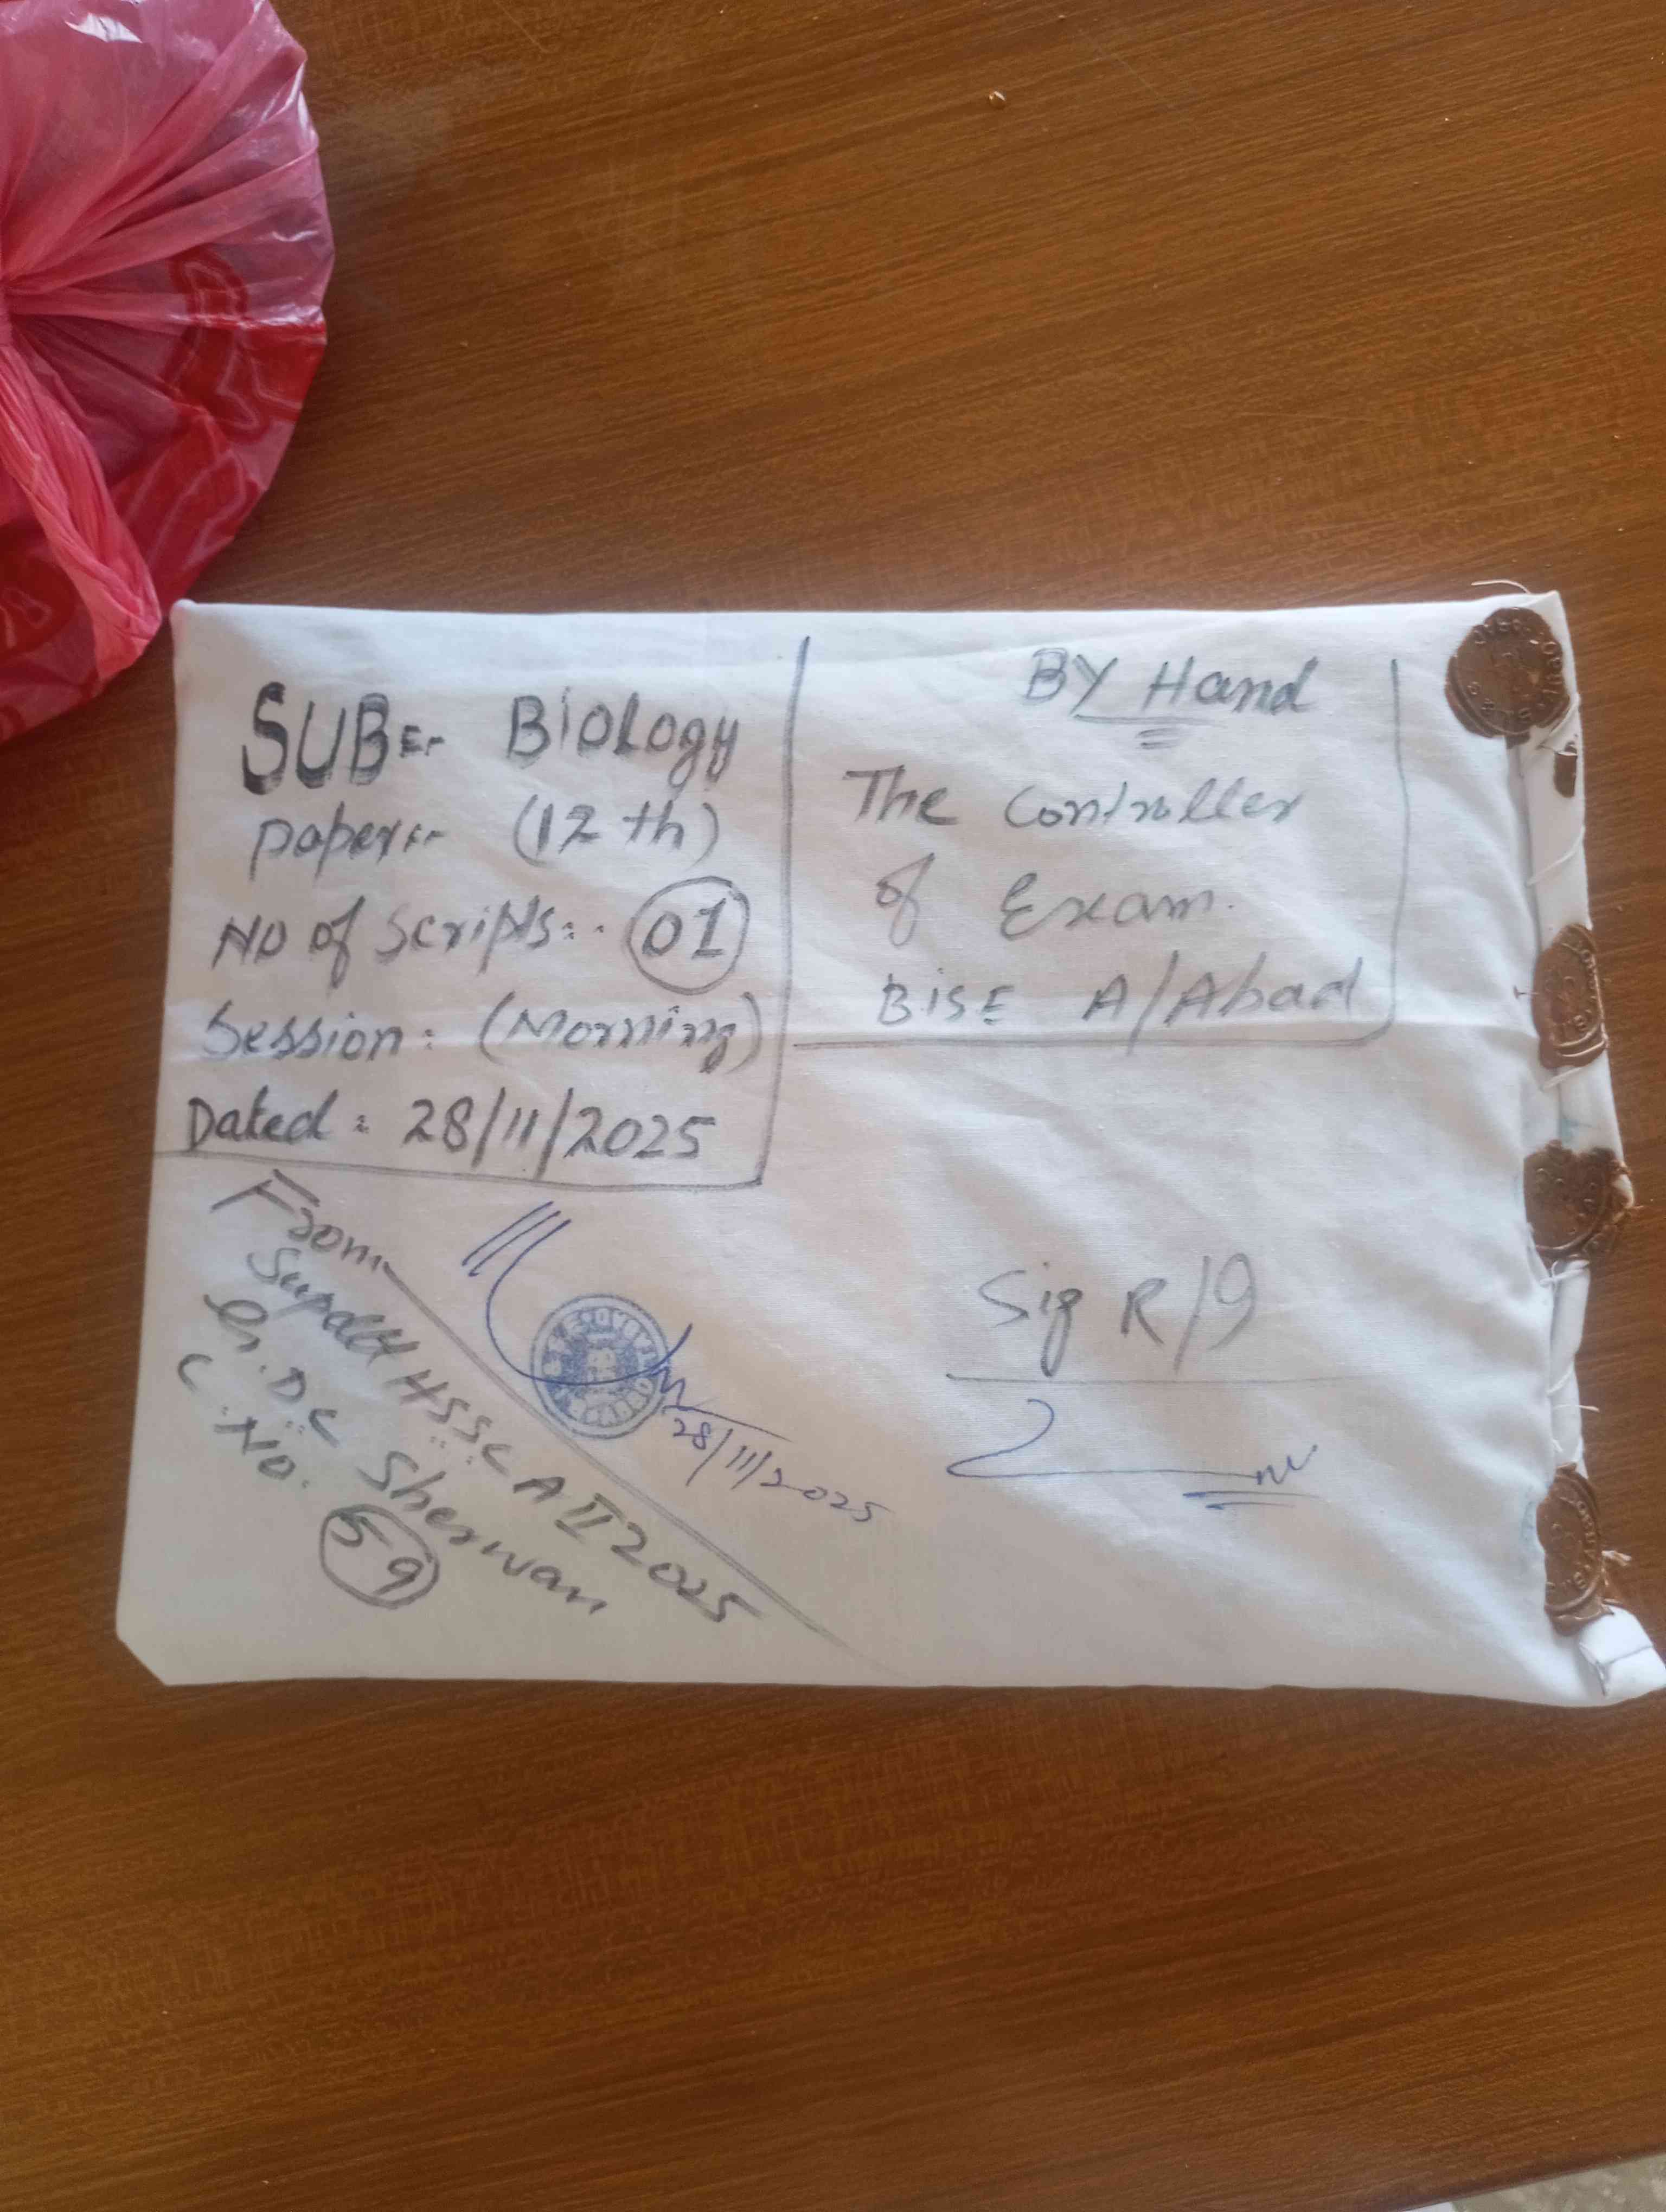 SUB:- Biology
paper:- (12 th)
NO of Scripts:- 01
Session: (Morning)
Dated: 28/11/2025
BY Hand
The Controller
of Exam.
BISE A/Abad
From
Supdtt HSSC A II 2025
G.D.C Sherwan
C.No. 59
28/11/2025
Sig R/9